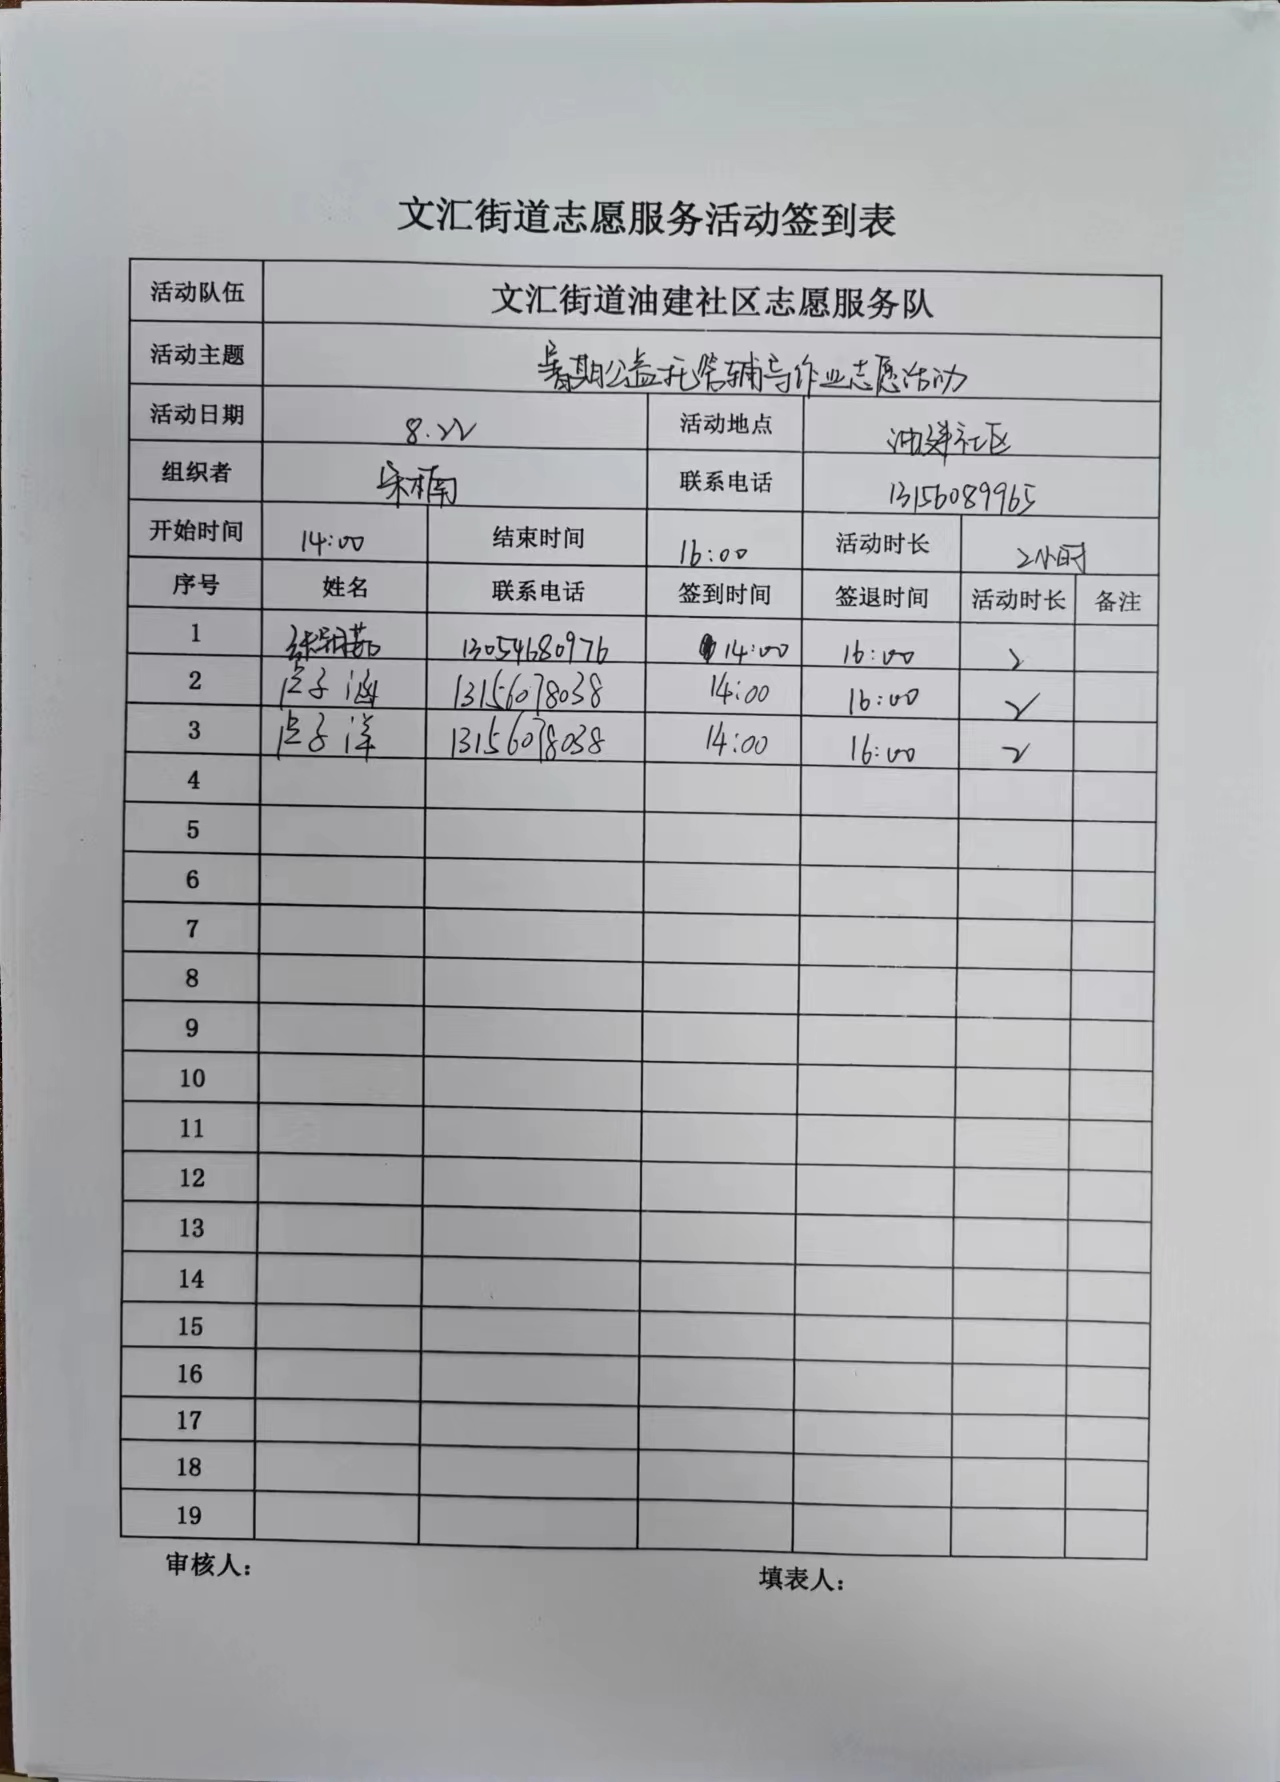 文汇街道志愿服务活动签到表
活动队伍 文汇街道油建社区志愿服务队
活动主题 暑期公益托管辅导作业志愿活动
活动日期 8.22 活动地点 油建社区
组织者 宋楠 联系电话 13156089965
开始时间 14:00 结束时间 16:00 活动时长 2小时
序号 姓名 联系电话 签到时间 签退时间 活动时长 备注
1 13054680976 14:00 16:00 2
2 卢子涵 13156078038 14:00 16:00 2
3 卢子洋 13156078038 14:00 16:00 2
4
5
6
7
8
9
10
11
12
13
14
15
16
17
18
19
审核人： 填表人：